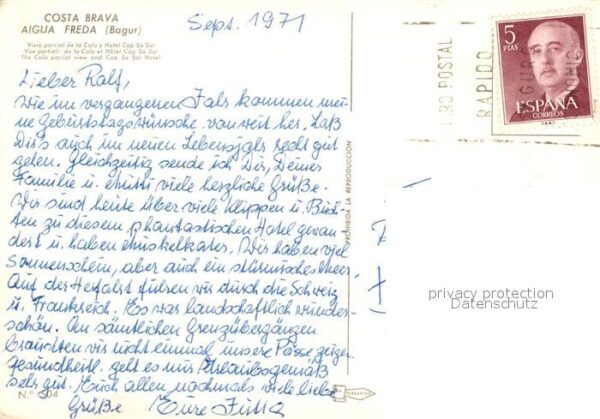 COSTA BRAVA
AIGUA FREDA (Bagur)
Vista parcial de la Cala y Hotel Cap Sa Sal
Vue partielle de la Cala et Hôtel Cap Sa Sal
The Cala partial view and Cap Sa Sal Hotel
Sept. 1971
Lieber Ralf,
wie im vergangenen Jahr kommen mei-
ne Geburtstagswünsche von weit her. Laß
Dir's auch im neuen Lebensjahr recht gut
gehen. Gleichzeitig sende ich Dir, Deiner
Familie u. Mutti viele herzliche Grüße.
Wir sind heute über viele Klippen u. Buch
ten zu diesem phantastischen Hotel gewan
dert u. haben Muskelkater. Wir haben viel
Sonnenschein, aber auch ein stürmisches Meer.
Auf der Herfahrt fuhren wir durch die Schweiz
u. Frankreich. Es war landschaftlich wunder-
schön. An sämtlichen Grenzübergängen
brauchten wir nicht einmal unsere Pässe zeigen.
Gesundheitl. geht es mir urlaubsgemäß
sehr gut. Euch allen nochmals viele liebe
Grüße Eure Jutta
N.º 304
PROHIBIDA LA REPRODUCCION
GIRO POSTAL
RAPIDO
5
PTAS
ESPAÑA
CORREOS
privacy protection
Datenschutz